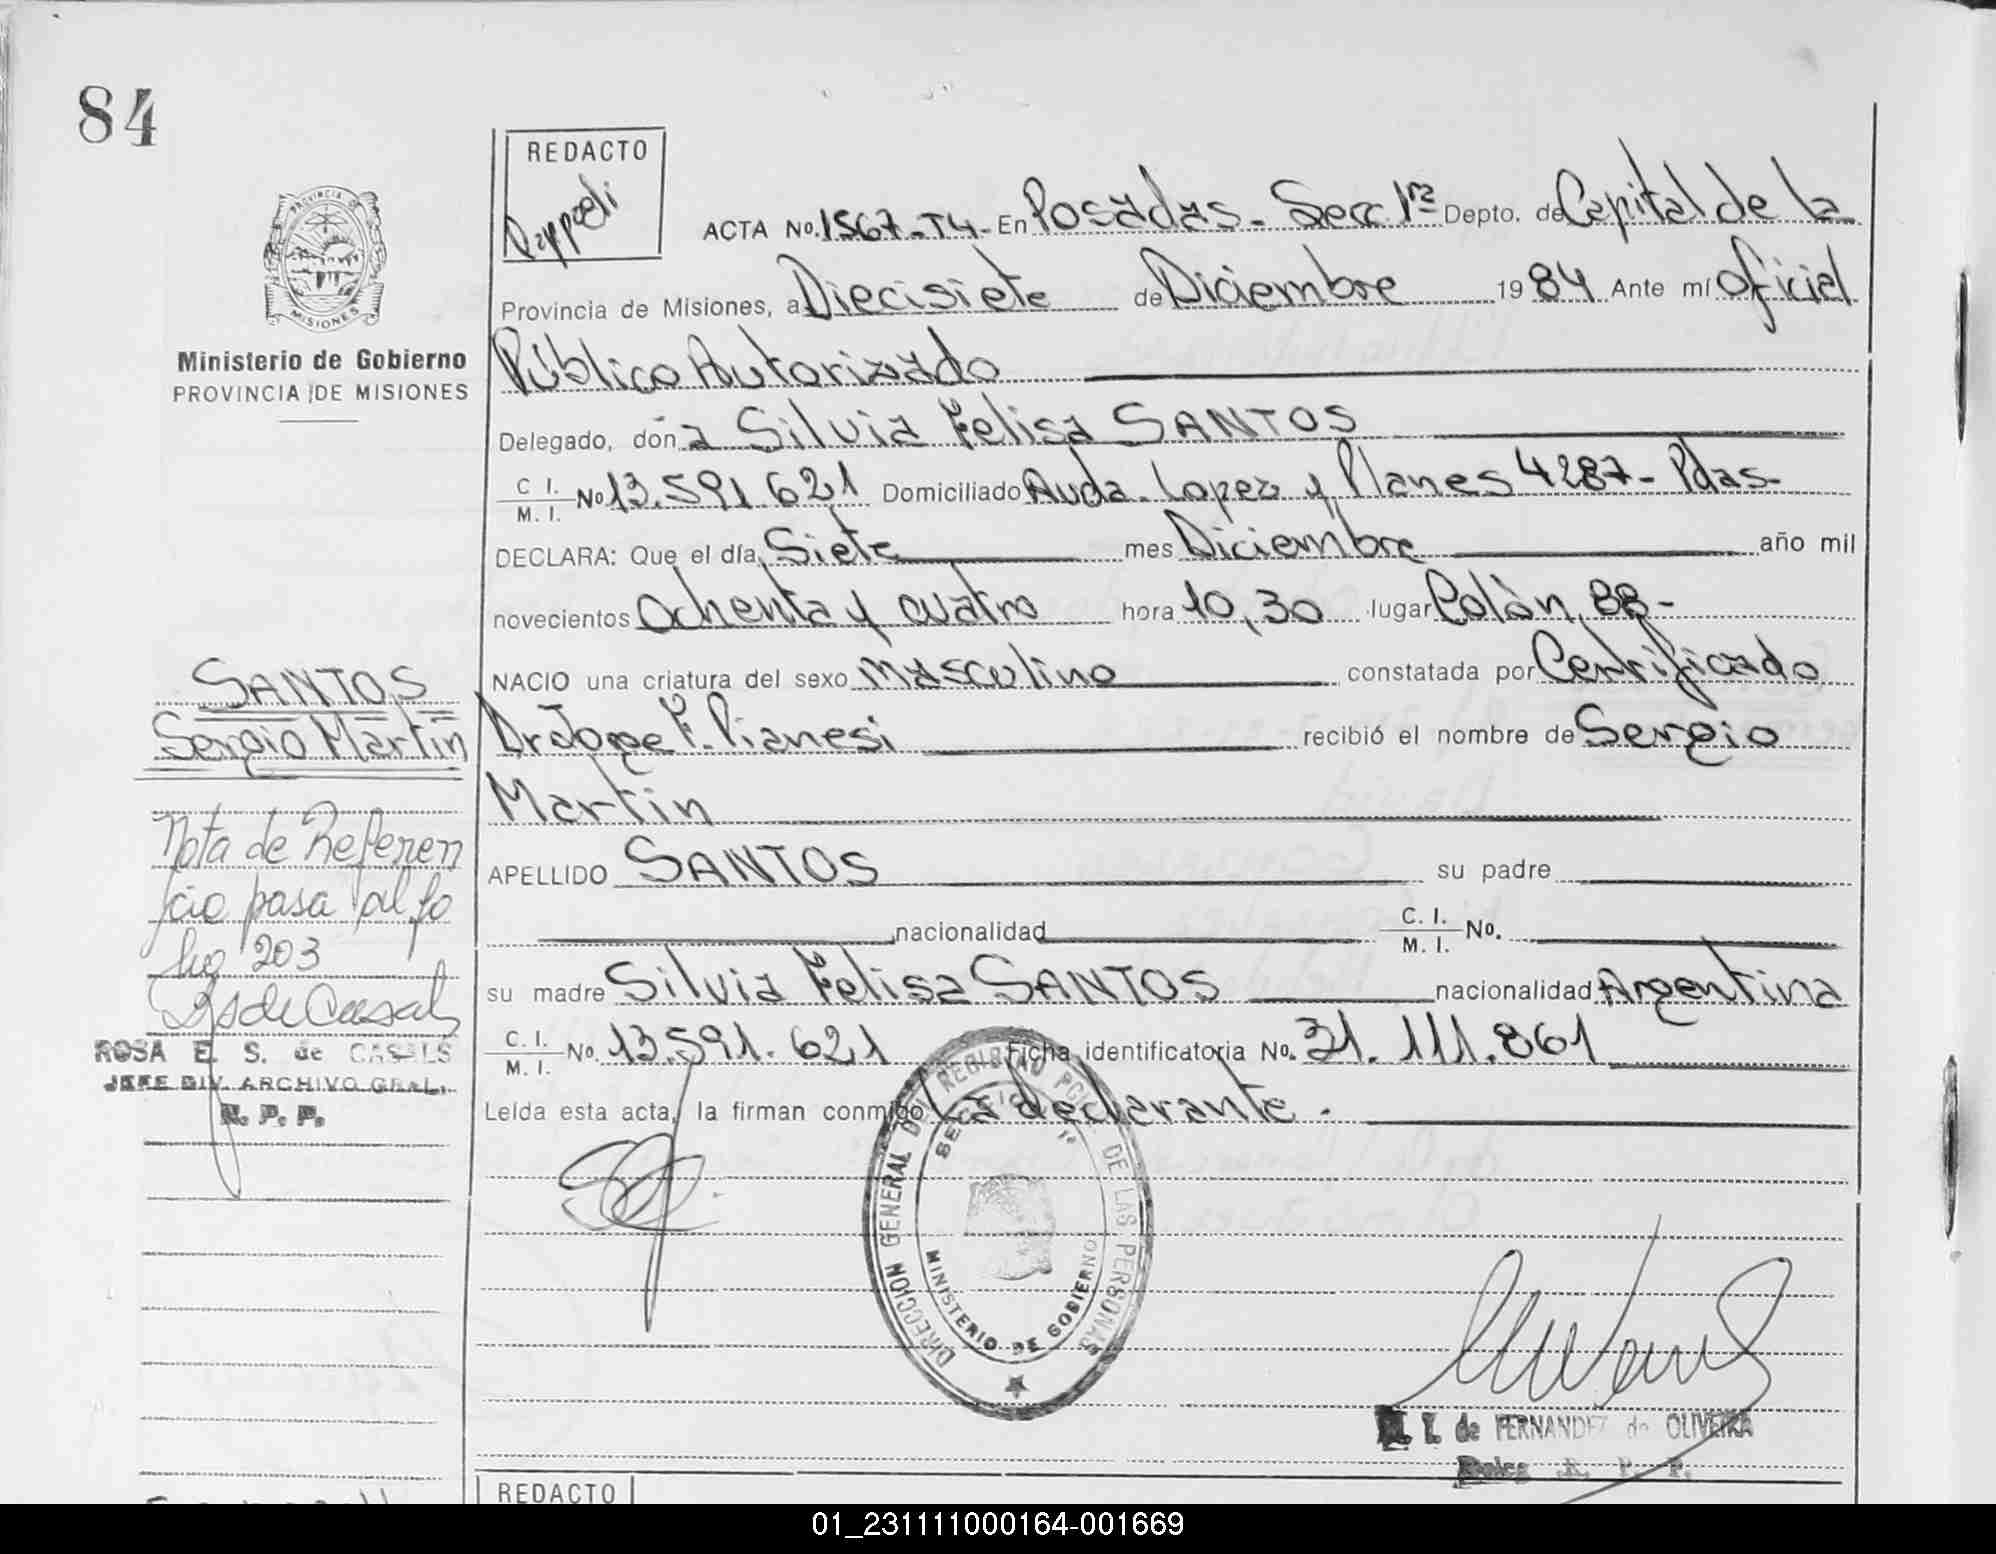 84
REDACTO
Rappoeli
PROVINCIA DE
MISIONES
Ministerio de Gobierno
PROVINCIA DE MISIONES
ACTA No. 1567-T4- En Posadas- Secc 1ra Depto. de Capital de la
Provincia de Misiones, a Diecisiete de Diciembre 1984 Ante mí Oficial
Público Autorizado
Delegado, don a Silvia Felisa SANTOS
C. I. M. I. No 13.591.621 Domiciliado Avda. Lopez y Planes 4287- Pdas-
DECLARA: Que el día Siete mes Diciembre año mil
novecientos Ochenta y cuatro hora 10,30 lugar Colón, 88-
NACIO una criatura del sexo Masculino constatada por Certificado
Dr Jorge F. Pianesi recibió el nombre de Sergio
Martin
APELLIDO SANTOS su padre
nacionalidad C. I. M. I. No.
su madre Silvia Felisa SANTOS nacionalidad Argentina
C. I. M. I. No. 13.591.621 Ficha identificatoria No. 31.111.861
Leída esta acta, la firman conmigo La declarante.
SANTOS
Sergio Martin
Nota de Referen
cia pasa al fo
lio 203
RSdeCasals
ROSA E. S. de CASALS
JEFE DIV. ARCHIVO GRAL.
R. P. P.
DIRECCION GENERAL DEL REGISTRO PCIAL. DE LAS PERSONAS
SECCION 1º
MINISTERIO DE GOBIERNO
I. de FERNANDEZ de OLIVEIRA
R. P. P.
REDACTO
01_231111000164-001669